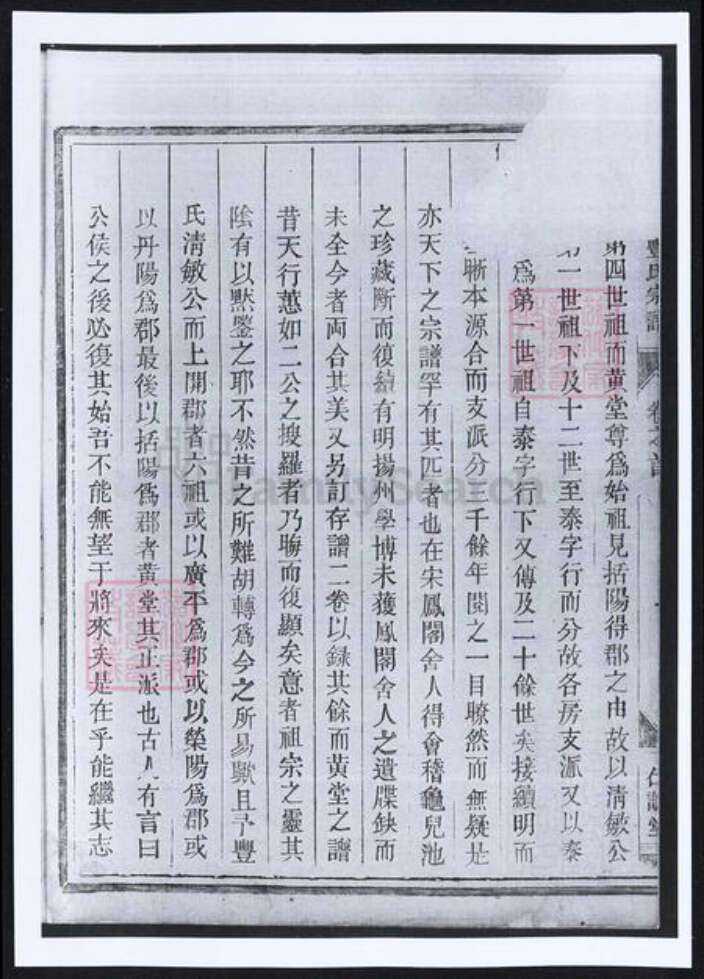 豐氏宗譜 卷之首
第四世祖而黄堂尊爲始祖見括陽得郡之由故以清敏公
第一世祖下及十二世至泰字行而分故各房支派又以泰
爲第一世祖自泰字行下又傳及二十餘世矣接續明而
晰本源合而支派分三千餘年閱之一目瞭然而無疑是
亦天下之宗譜罕有其匹者也在宋鳳閣舍人得會稽龜兒池
之珍藏斷而復續有明揚州學博未獲鳳閣舍人之遺牒缺而
未全今者両合其美又另訂存譜二卷以録其餘而黄堂之譜
昔天行蕙如二公之搜羅者乃晦而復顯矣意者祖宗之靈其
陰有以黙鑒之耶不然昔之所難胡轉爲今之所易歟且予豐
氏清敏公而上開郡者六祖或以廣平爲郡或以榮陽爲郡或
以丹陽爲郡最後以括陽爲郡者黄堂其正派也古人有言曰
公侯之後必復其始吾不能無望于將來矣是在乎能繼其志
FamilySearch